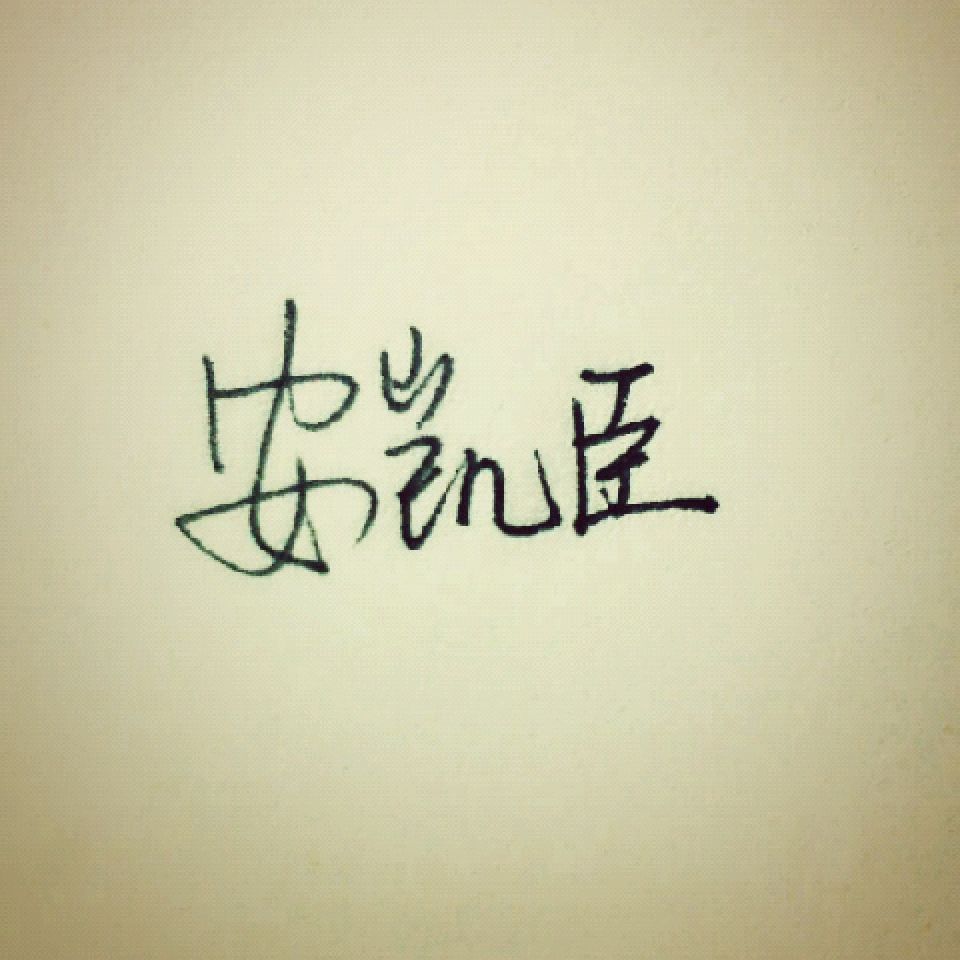 安凯臣